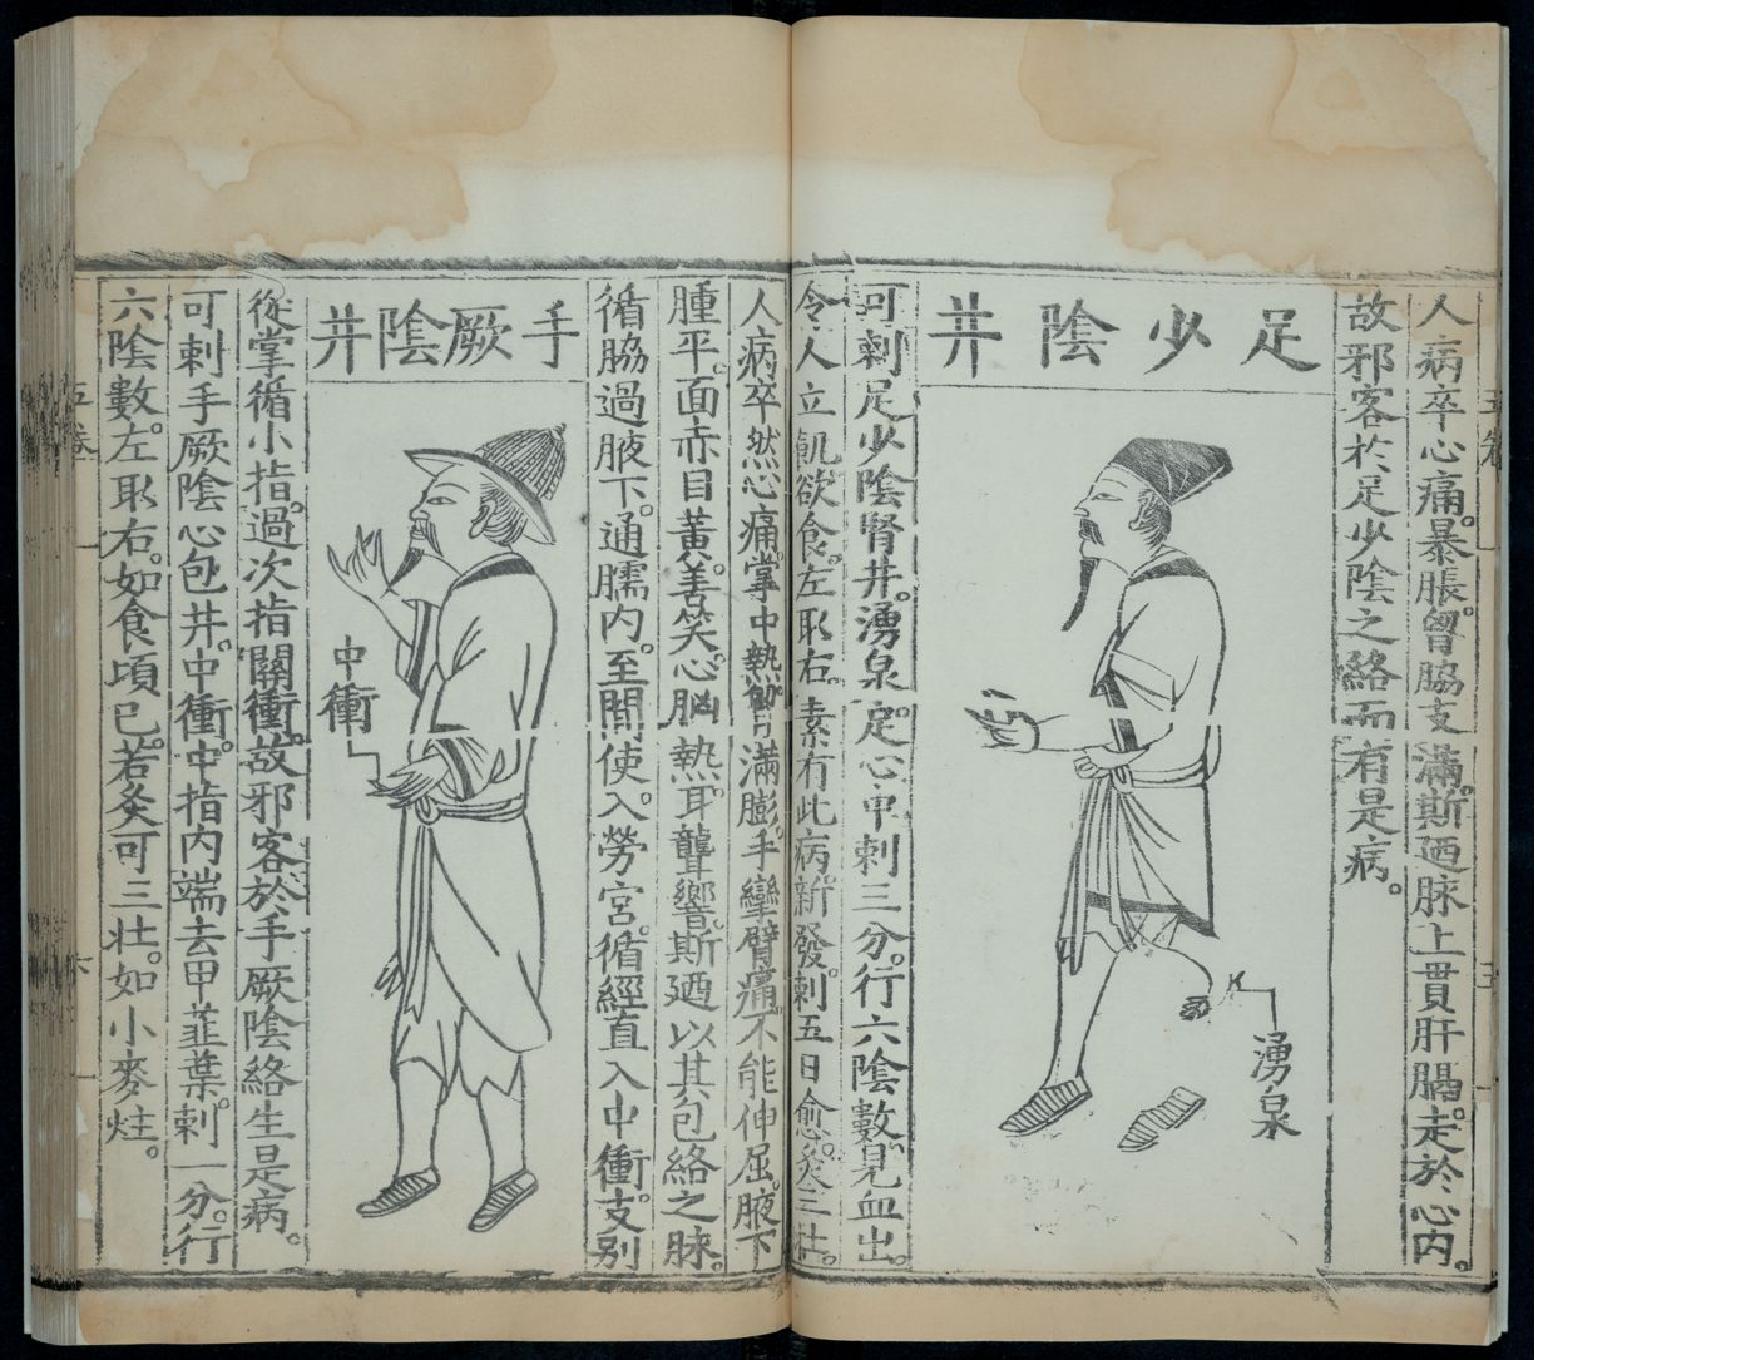 人病卒心痛。暴脹。胷脇支滿。斯廼脉上貫肝膈。走於心內。
故邪客於足少陰之絡而有是病。
足少陰井
湧泉
可刺足少陰腎井。湧泉定。心中刺三分。行六陰數。見血出。
令人立飢欲食。左取右。素有此病新發。刺五日愈。灸三壯。
人病卒然心痛。掌中熱。胷滿膨。手攣臂痛。不能伸屈。腋下
腫平。面赤目黃。善笑。心胸熱。耳聾響。斯廼以其包絡之脉。
循脇過腋下。通臑內。至間使。入勞宮。循經直入中衝。支别
手厥陰井
中衝
從掌循小指。過次指關衝。故邪客於手厥陰絡生是病。
可刺手厥陰心包井。中衝。中指內端去甲韮葉。刺一分。行
六陰數。左取右。如食頃已。若灸可三壯。如小麥炷。
五卷
六